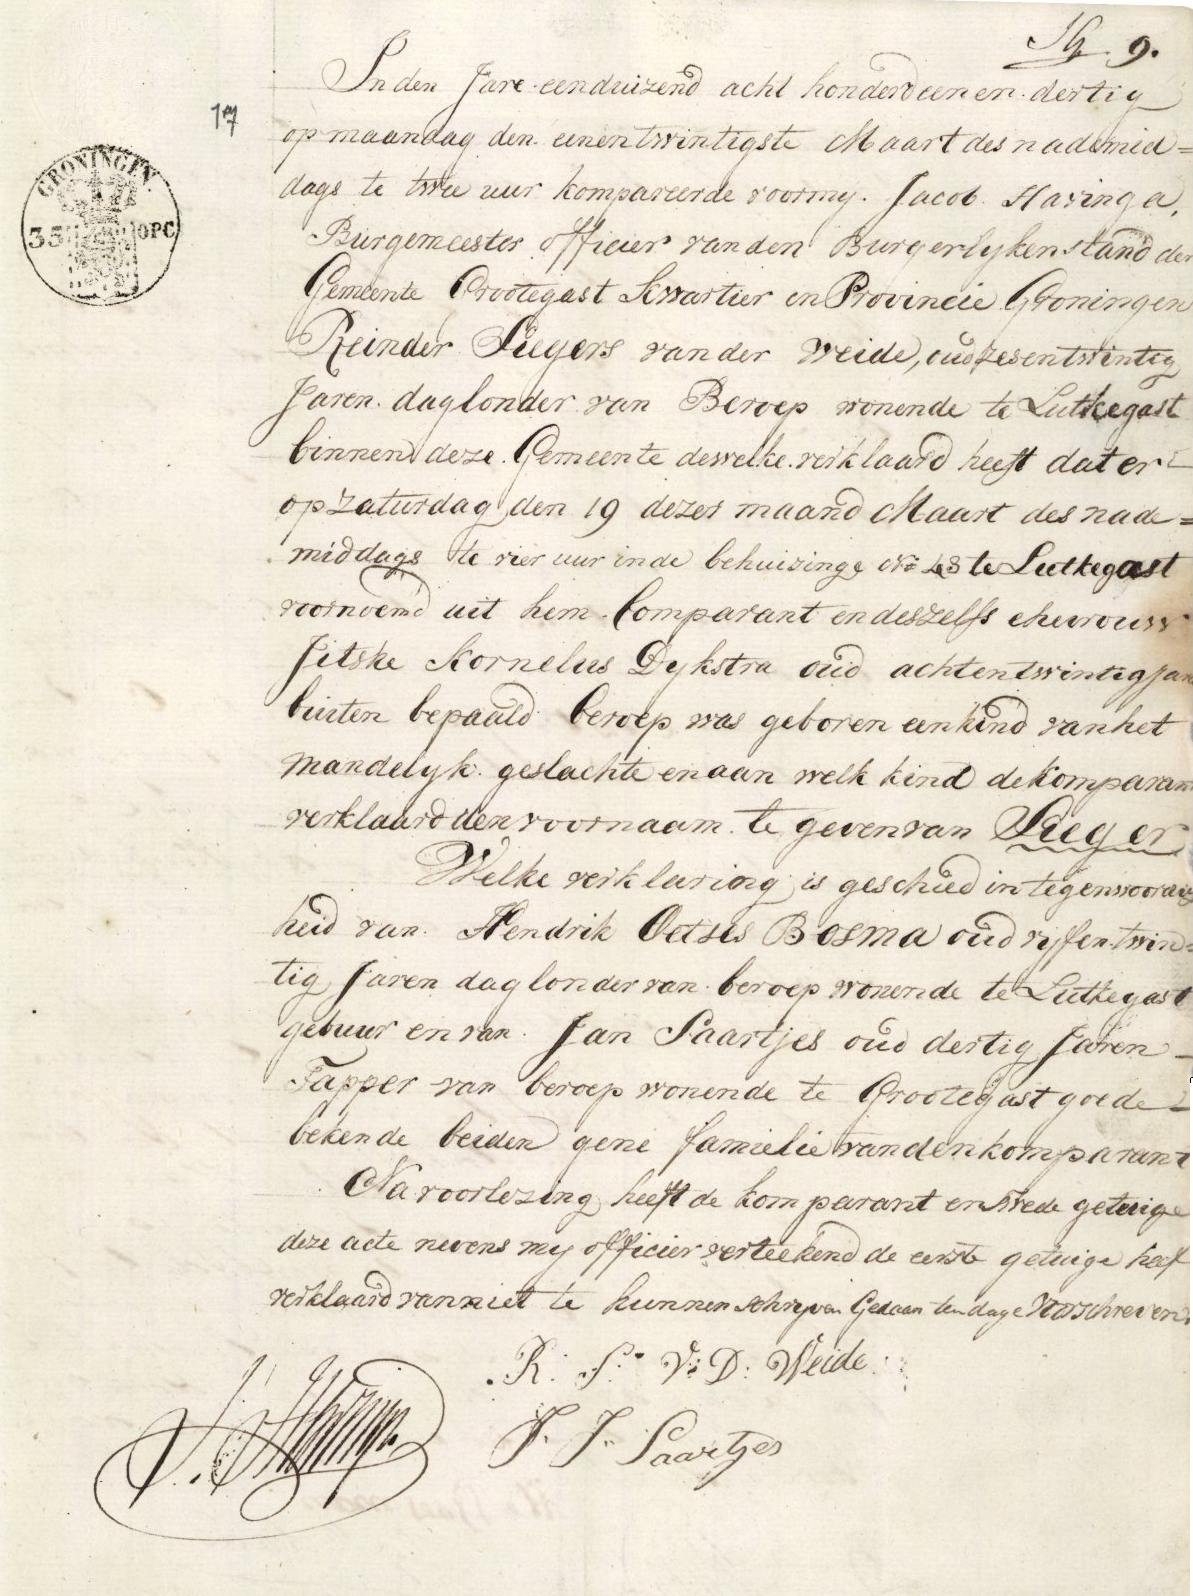 9.
In den Jare eenduizend acht honderd een en dertig
17
op maandag den eenentwintigste Maart des nademid=
GRONINGEN.
dags te twee uur kompareerde voor my Jacob Havinga,
35 OPC
Burgemeester officier van den Burgerlyken stand der
Gemeente Grootegast Kwartier en Provincie Groningen
Reinder Siegers van der Weide, oud zesentwintig
Jaren daglonder van Beroep wonende te Lutkegast
binnen deze Gemeente dewelke verklaard heeft dat er
op Zaturdag den 19 dezer maand Maart des nade=
middags te vier uur in de behuizinge No te Lutkegast
voornoemd uit hem Comparant en deszelfs ehevrouw
Jitske Kornelus Dykstra oud achtentwintig jare
buiten bepaald beroep was geboren een kind van het
mandelyk geslachte en aan welk kind de Komparan
verklaard den voornaam te geven van Sieger
Welke verklaring is geschied in tegenwoordig
heid van Hendrik Oetses Bosma oud vyfentwin=
tig Jaren daglonder van beroep wonende te Lutkegast
gebuur en van Jan Saartjes oud dertig Jaren
Tapper van beroep wonende te Grootegast goede
bekende beiden gene familie van den komparant
Na voorlezing heeft de komparant en twede getuige
deze acte nevens my officier verteekend de eerste getuige heef
verklaard van niet te kunnen schryven Gedaan ten dage Voorschreven.
R. S. V: D: Weide
J. J. Saartjes